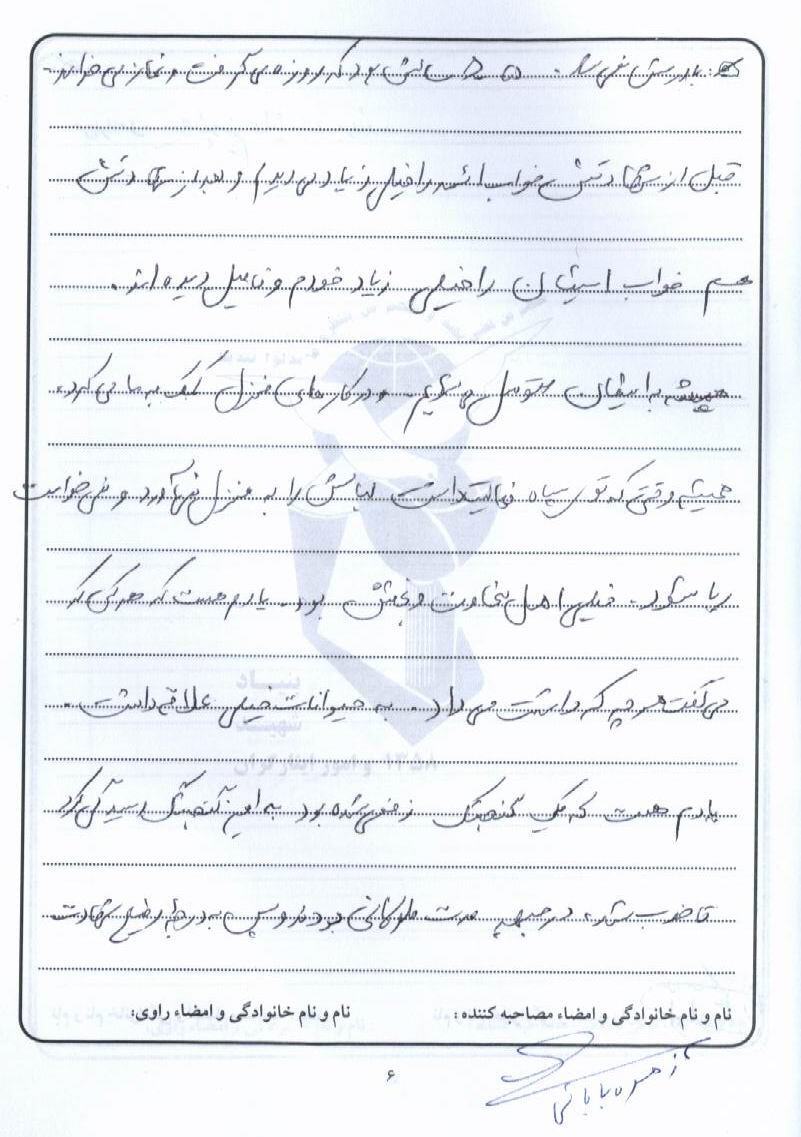 سالش بود که روزه می گرفت و نماز می خواند.
قبل از شهادتش خواب ائمه را خیلی زیاد می دیدم و بعد از شهادتش
هم خواب ایشان را خیلی زیاد خودم و فامیل دیده اند.
همیشه به ایشان متوسل می شویم. در کارهای منزل کمک به ما می کرد.
همیشه وقتی که توی سپاه فعالیت داشت لباسش را به منزل نمی آورد و نمی خواست
ریا شود. خیلی اهل سخاوت و بخشش بود. یادم هست که هر کی که
می گفت هر چه که داشت می داد. به حیوانات خیلی علاقه داشت.
یادم هست که یک گنجشک زخمی شده بود به این گنجشک رسیدگی کرد
تا خوب شد. در جبهه مدت طولانی بودند و سپس به درجه رفیع شهادت
نام و نام خانوادگی و امضاء مصاحبه کننده :
نام و نام خانوادگی و امضاء راوی:
بنیاد
شهید
و امور ایثارگران
۱۳۵۸
۶